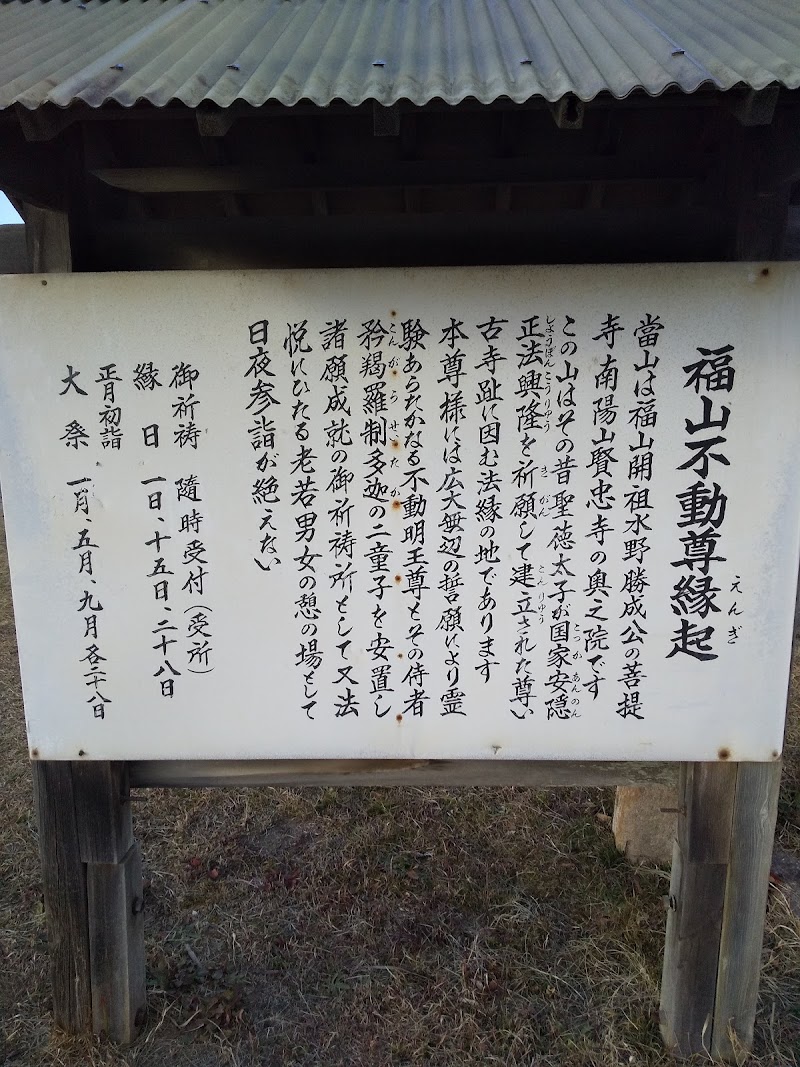 福山不動尊縁起
えんぎ
當山は福山開祖水野勝成公の菩提
寺南陽山賢忠寺の奥之院です
この山はその昔聖徳太子が国家安隠
とつか あんのん
正法興隆を祈願して建立された尊い
しようぼんこうりゆう きがん とんりゆう
古寺趾に因む法縁の地であります
本尊様には広大無辺の誓願により霊
験あらたかなる不動明王尊とその侍者
矜羯羅制多迦の二童子を安置し
こんがら せいたか
諸願成就の御祈祷所として又法
悦にひたる老若男女の憩の場として
日夜参詣が絶えない
御祈祷 隨時受付(受所)
縁日 一日、十五日、二十八日
正月初詣
大祭 一月、五月、九月各二十八日